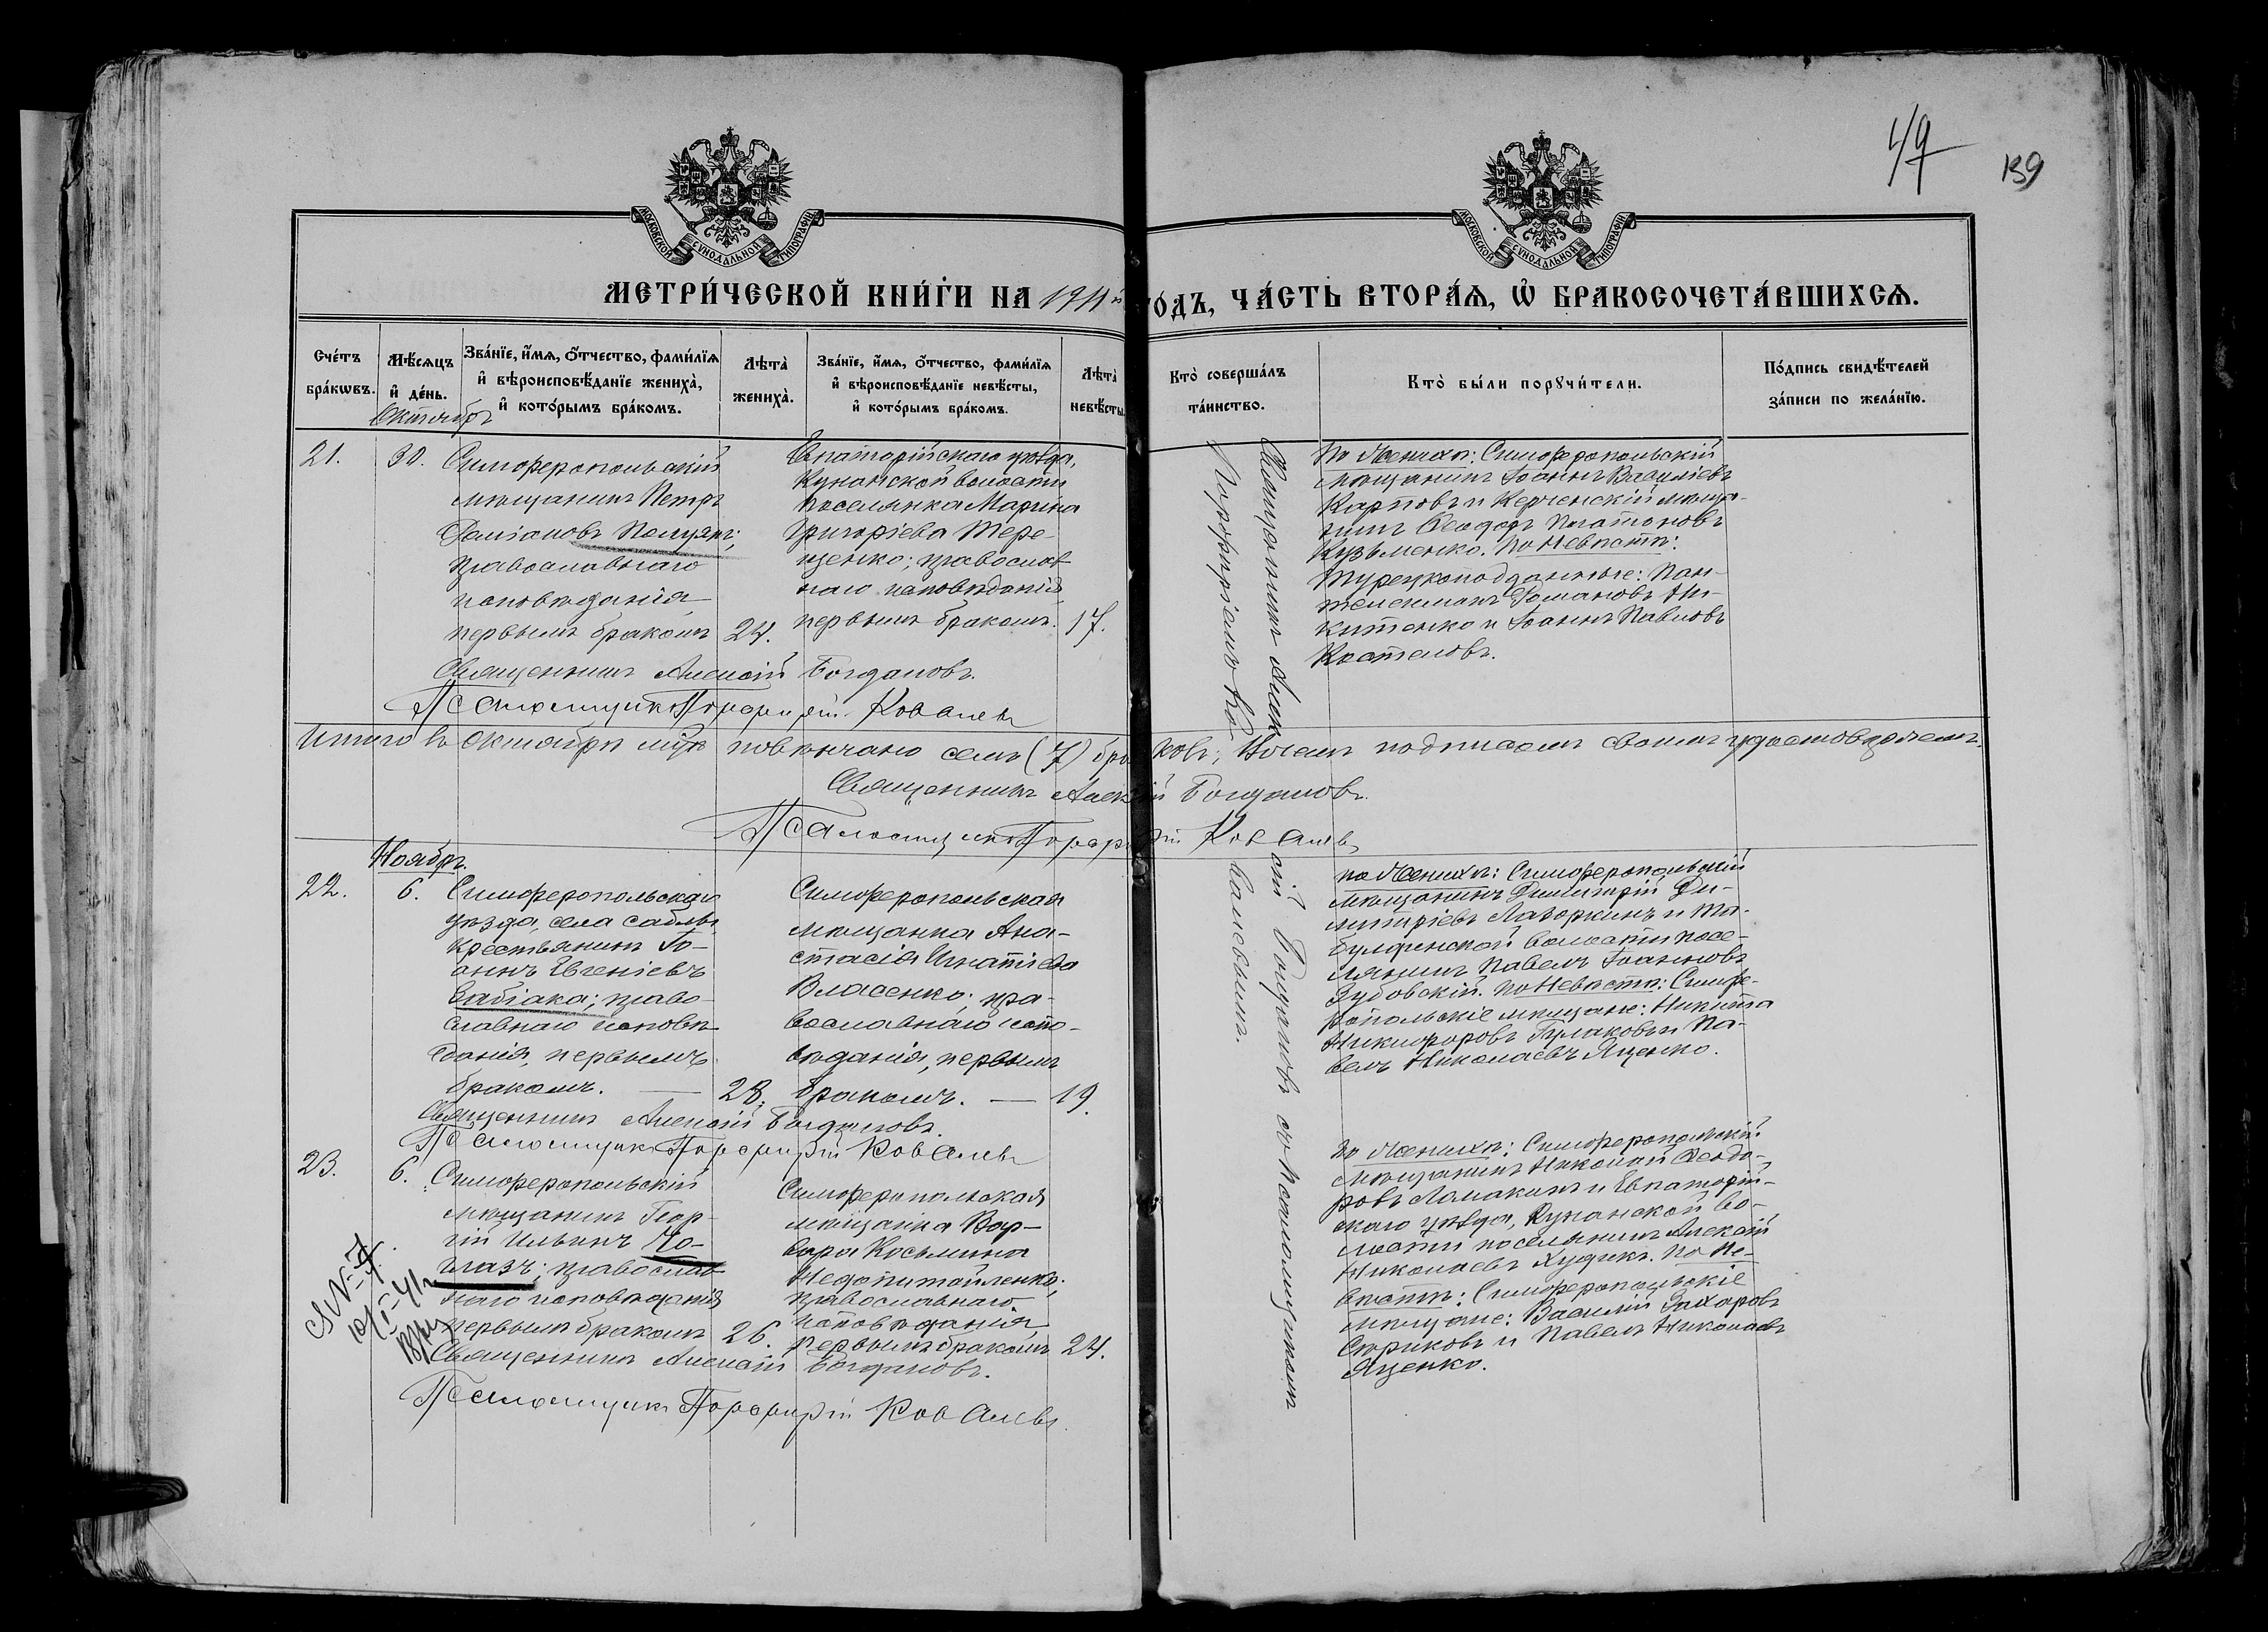 49
139
МОСКОВСКОЙ СУНОДАЛЬНОЙ ТИПОГРАФІИ
МОСКОВСКОЙ СУНОДАЛЬНОЙ ТИПОГРАФІИ
МЕТРИ́ЧЕСКОЙ КНИ́ГИ НА 1911й
ГО́ДЪ, ЧА́СТЬ ВТОРА́Я, Ѡ БРАКОСОЧЕТА́ВШИХСЯ.
Сче́тъ бра́кѡвъ.
Мѣ́сяцъ и҆ де́нь.
Зва́нїе, и҆́мя, ѻ҆́тчество, фами́лїя
и҆ вѣроисповѣ́данїе жениха̀,
и҆ кото́рымъ бра́комъ.
Лѣта̀ жениха̀.
Зва́нїе, и҆́мя, ѻ҆́тчество, фами́лїя
и҆ вѣроисповѣ́данїе невѣ́сты,
и҆ кото́рымъ бра́комъ.
Лѣта̀ невѣ́сты.
Кто̀ соверша́лъ
та́инство.
Кто̀ бы́ли порꙋчи́тели.
По́дпись свидѣ́телей
за́писи по жела́нїю.
Октябрь
21.
30.
Симферопольскій
мѣщанинъ Петръ
Даміановъ
православнаго
исповѣданія
первымъ бракомъ
24.
Евпаторійскаго уѣзда,
Кунанской волости
поселянка Марина
Григоріева Тере-
щенко; православ
наго исповѣданія,
первымъ бракомъ.
17.
По женихѣ: Симферопольскій
мѣщанинъ Іоаннъ Василіевъ
Карповъ и Керченскій мѣща-
нинъ Ѳеодоръ Платоновъ
Кузьменко. По невѣстѣ:
Турецкоподданные: Пан-
телеимонъ Романовъ Ни-
китенко и Іоаннъ Павловъ
Костеловъ.
Священникъ Алексій Богдановъ.
Псаломщикъ Порфирій Ковалевъ
Итого въ Октябрѣ мцѣ повѣнчано семь (7) браковъ; въ чемъ подписомъ своимъ удостовѣряемъ.
Священникъ Алексій Богдановъ.
Псаломщикъ Порфирій Ковалевъ
Ноябрь.
22.
6.
Симферопольскаго
уѣзда, села Саблы
крестьянинъ Іо-
аннъ Евгеніевъ
Бабіака; право-
славнаго исповѣ-
данія, первымъ
бракомъ.
28.
Симферопольская
мѣщанка Ана-
стасія Игнатіева
Власенко; пра-
вославнаго испо-
вѣданія, первымъ
бракомъ.
19.
По женихѣ: Симферопольскій
мѣщанинъ Димитрій Ди-
митріевъ Лазоркинъ и Та-
булдинской волости посе-
лянинъ Павелъ Іоанновъ
Зубовскій. По невѣстѣ: Симфе-
ропольскіе мѣщане: Никита
Никифоровъ Гулаковъ и Па-
велъ Николаевъ Яценко.
Священникъ Алексій Богдановъ.
Псаломщикъ Порфирій Ковалевъ
23.
6.
Симферопольскій
мѣщанинъ Геор-
гій Ильинъ Чо-
глазъ; православ
наго исповѣданія
первымъ бракомъ
26.
Симферопольская
мѣщанка Вар-
вара Косьмина
православнаго
исповѣданія
первымъ бракомъ
24.
По женихѣ: Симферопольскій
мѣщанинъ Николай Ѳеодо-
ровъ Ломакинъ и Евпаторій-
скаго уѣзда, Кунанской во-
лости поселянинъ Алексій
Николаевъ Худикъ. По не-
вѣстѣ: Симферопольскіе
мѣщане: Василій Захаровъ
Сѣриковъ и Павелъ Николаевъ
Яценко.
Священникъ Алексій Богдановъ.
Псаломщикъ Порфирій Ковалевъ
Священникъ Алексій Богдановъ съ псаломщикомъ
Порфиріемъ Ковалевымъ.